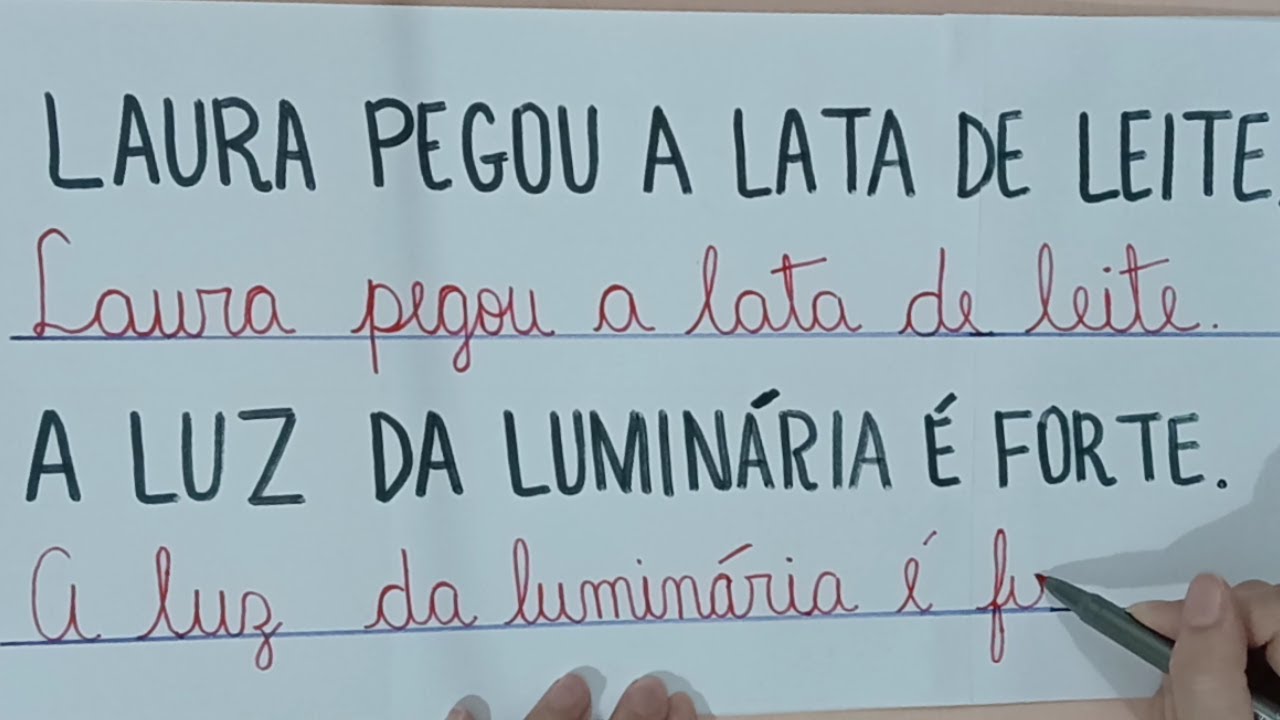 LAURA PEGOU A LATA DE LEITE.
Laura pegou a lata de leite.
A LUZ DA LUMINÁRIA É FORTE.
A luz da luminária é